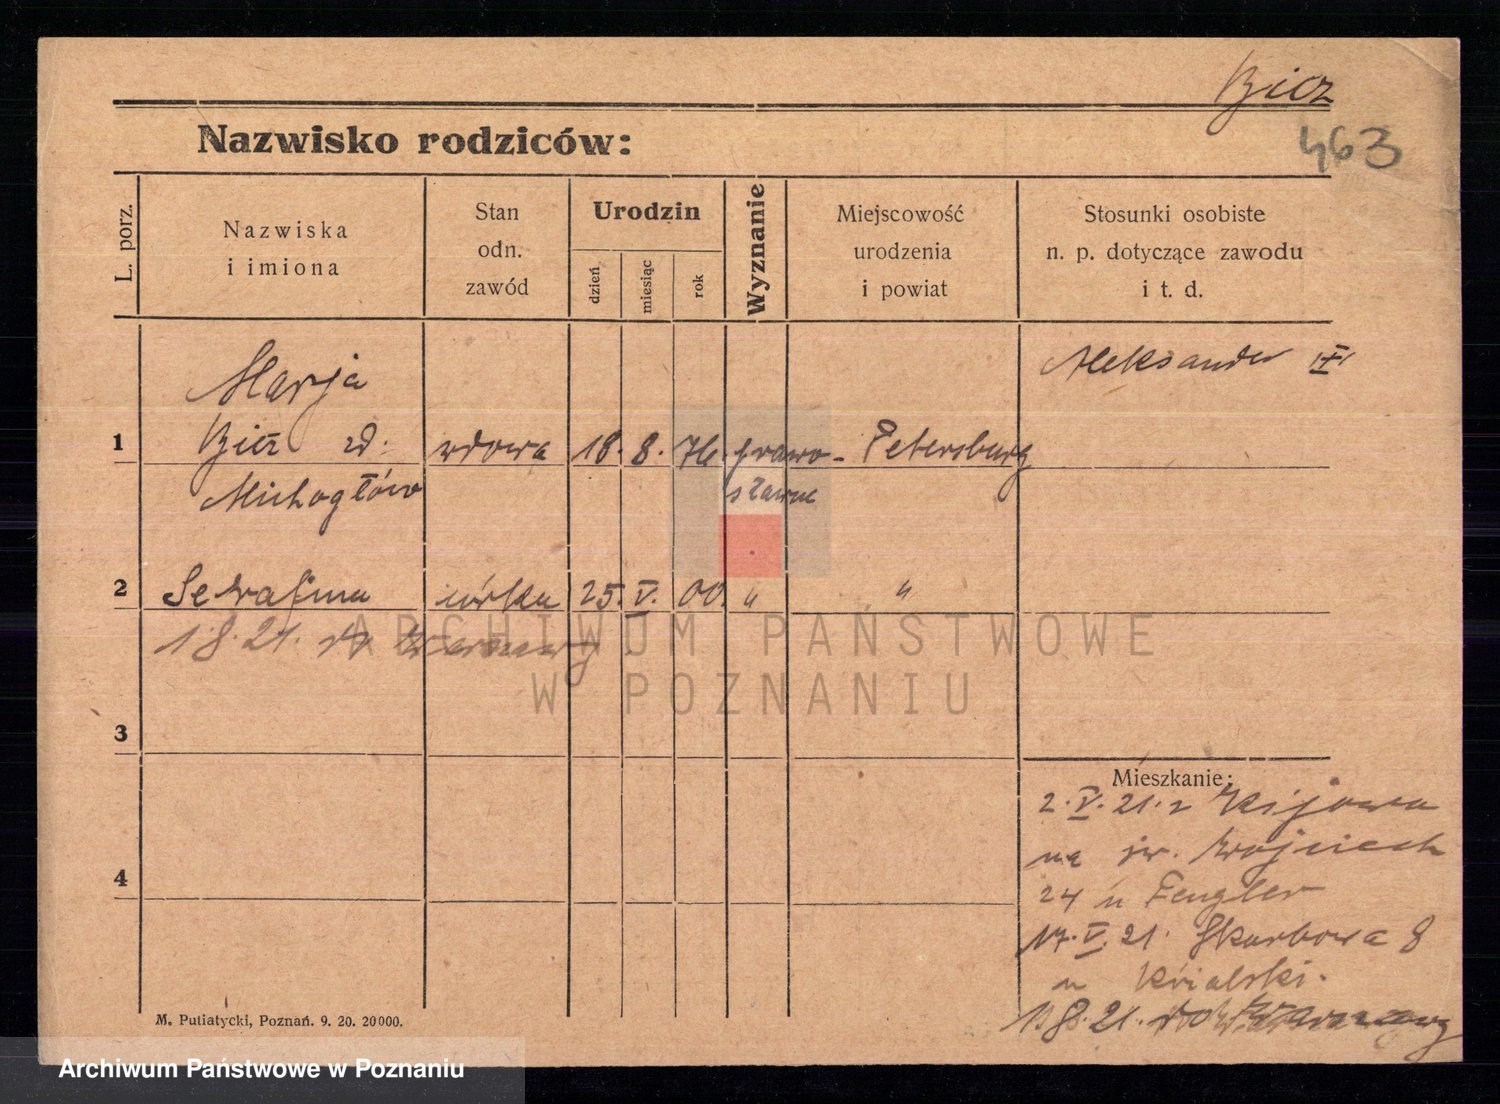 Bicz
463
Nazwisko rodziców:
L. porz.
Nazwiska
i imiona
Stan
odn.
zawód
Urodzin
dzień
miesiąc
rok
Wyznanie
Miejscowość
urodzenia
i powiat
Stosunki osobiste
n. p. dotyczące zawodu
i t. d.
Marja
Aleksander
1 Bicz wdowa 18. 8. 76 prawo- Petersburg
sławne
2 Serafina córka 25. V. 00. " "
1 8. 21. do Warszawy
3
Mieszkanie:
2. V. 21. z Kijowa
na św. Wojciech
24 u Fengler
17. V. 21. Skarbowa 8
u
1 8. 21. do Warszawy
4
M. Putiatycki, Poznań. 9. 20. 20000.
ARCHIWUM PAŃSTWOWE
W POZNANIU
Archiwum Państwowe w Poznaniu